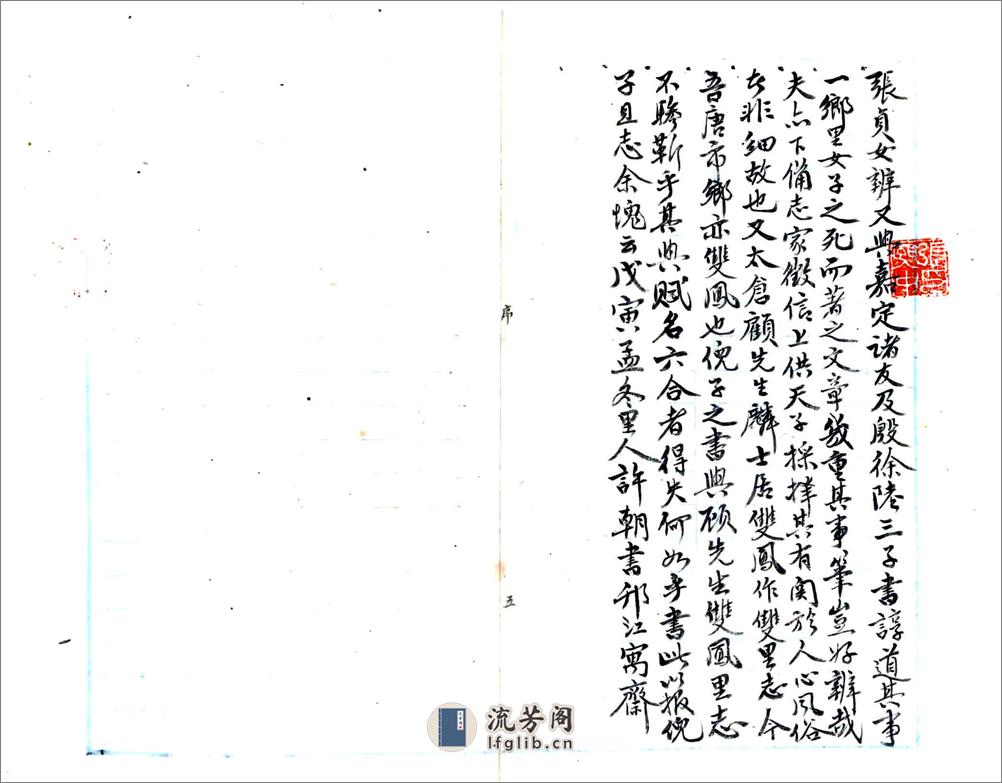 張貞女辨又與嘉定諸友及殷徐陸三子書諄道其事
一鄉里女子之死而著之文章幾重其事筆豈好辨哉
夫亦下備志家徵信上供天子採擇其有關於人心風俗
者非細故也又太倉顧先生麟士居雙鳳作雙里志今
吾唐市鄉亦雙鳳也倪子之書與顧先生雙鳳里志
不驂靳乎其與賦名六合者得失何如乎書此以報倪
子且志余愧云戊寅孟冬里人許朝書邗江寓齋
序
五
一
流芳阁
lfglib.cn